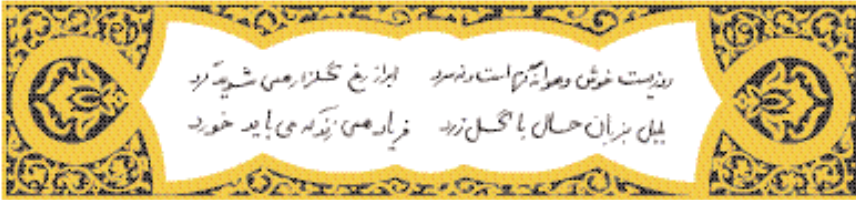 روزیست خوش و هوا نه گرم است و نه سرد ابر از رخ گلزار همی شوید گرد
بلبل بزبان حال با گل زرد فریاد همی زند که می باید خورد